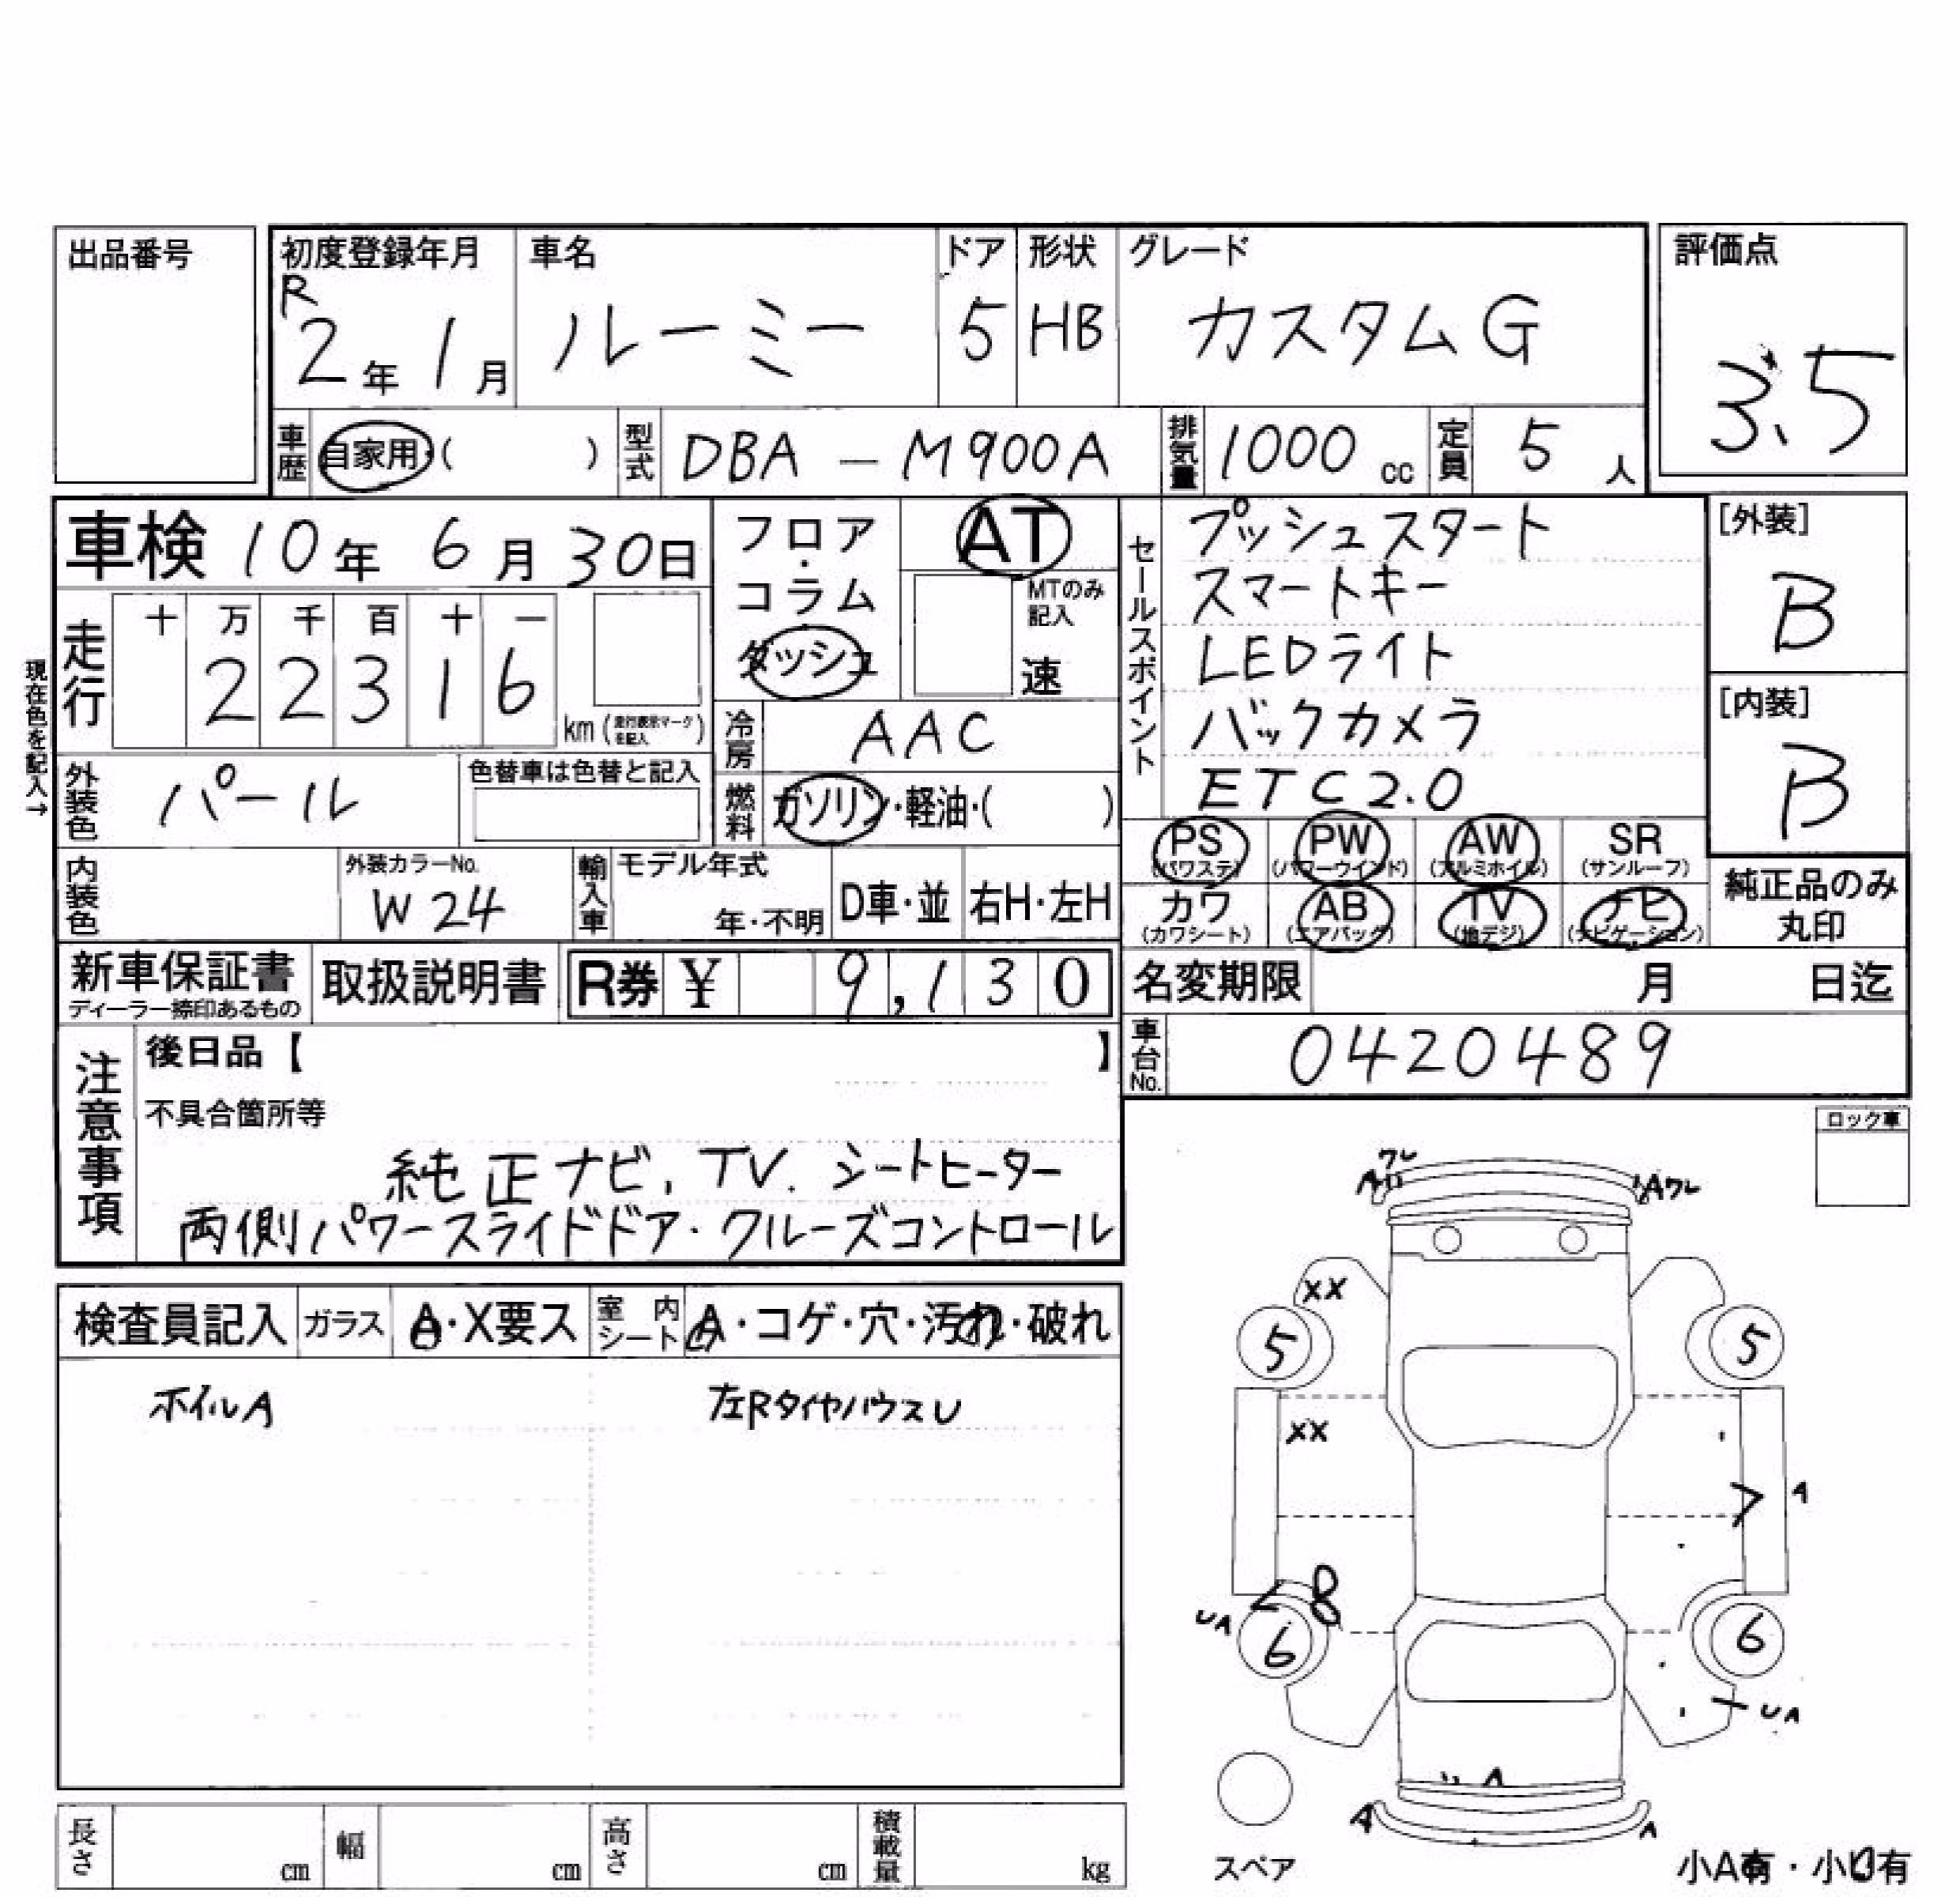 出品番号
初度登録年月 車名 ドア 形状 グレード 評価点
R
2年 1月 ルーミー 5 HB カスタムG 3.5
車歴 自家用・( ) 型式 DBA - M900A 排気量 1000 cc 定員 5 人
車検 10年 6月 30日
フロア・コラム ダッシュ
AT
MTのみ記入
速
セールスポイント
プッシュスタート
スマートキー
LEDライト
バックカメラ
ETC2.0
[外装]
B
[内装]
B
現在色を記入→
走行 十 万 千 百 十 一
2 2 3 1 6
km (走行表示マークを記入)
冷房 AAC
外装色 パール 色替車は色替と記入
燃料 ガソリン・軽油・( )
PS (パワステ) PW (パワーウインド) AW (アルミホイル) SR (サンルーフ)
カワ (カワシート) AB (エアバッグ) TV (地デジ) ナビ (ナビゲーション)
純正品のみ
丸印
内装色 外装カラーNo. W24 輸入車 モデル年式 年・不明 D車・並 右H・左H
新車保証書 取扱説明書 R券 ¥ 9,130 名変期限 月 日迄
ディーラー捺印あるもの
車台No. 0420489
注意事項
後日品【 】
不具合箇所等
純正ナビ、TV、シートヒーター
両側パワースライドドア・クルーズコントロール
ロック車
検査員記入 ガラス A・X要ス 室内シート A・コゲ・穴・汚れ・破れ
ホイルA 左RタイヤハウスU
ワレ
A Aワレ
XX
5 5
XX
A
8
UA
6 6
UA
A
A A
スペア 小A有・小U有
長さ cm 幅 cm 高さ cm 積載量 kg